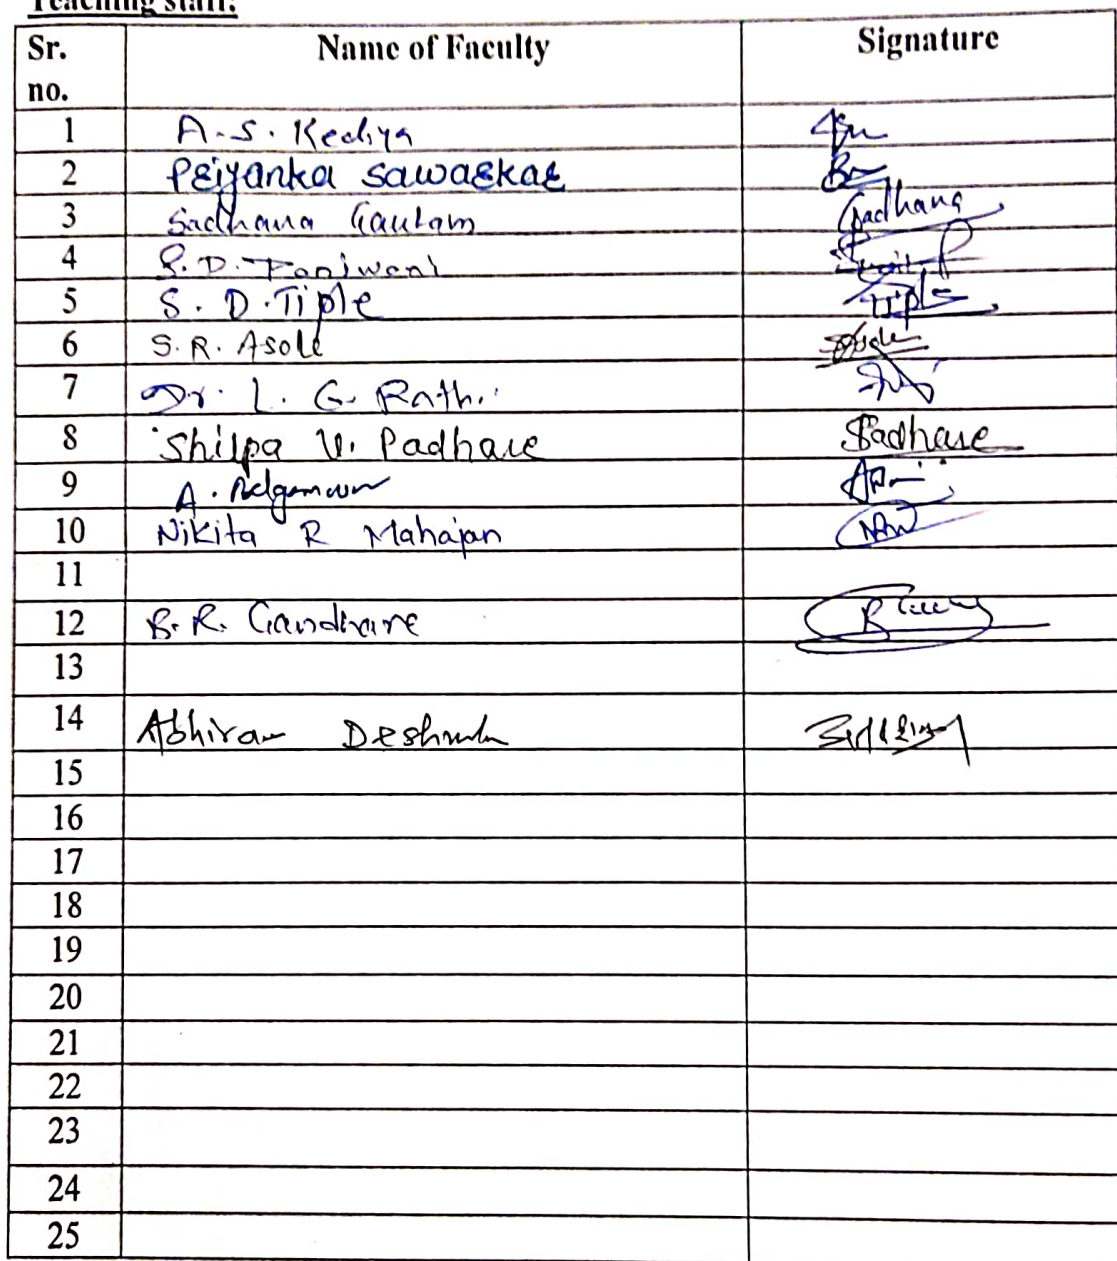 Teaching staff:
Sr. no. Name of Faculty Signature
1 A.S. Kediya
2 Priyanka Sawarkar
3 Sadhana Gautam Sadhana
4 S.D.
5 S.D. Tiple Tiple
6 S.R. Asole
7 Dr. L. G. Rathi
8 Shilpa V. Padhare SPadhare
9 A.
10 Nikita R Mahajan
11
12 B.R. Gandhare
13
14 Abhiram Deshmukh
15
16
17
18
19
20
21
22
23
24
25